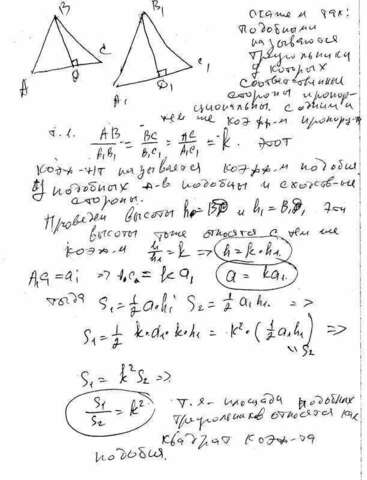 B
B₁
A
D
C
A₁
D₁
C₁
скажем так:
подобными
называются
треугольники
у которых
соответственные
стороны пропор-
циональны с одним и
тем же коэфф-м пропор-и
т.е. AB/A₁B₁ = BC/B₁C₁ = AC/A₁C₁ = k. этот
коэф-нт называется коэфф-м подобия
У подобных Δ-в подобны и сходств-ые
стороны.
Проведем высоты h = BD и h₁ = B₁D₁, эти
высоты тоже относятся с тем же
коэф-м h/h₁ = k => h = k·h₁
A₁C₁ = a₁ => = ka₁ a = ka₁
тогда S₁ = ½ a·h; S₂ = ½ a₁h₁ =>
S₁ = ½ k·a₁·k·h₁ = k²·(½ a₁h₁) =>
S₂
S₁ = k²S₂ =>
S₁/S₂ = k² т.е. площади подобных
треугольников относятся как
квадрат коэф-та
подобия.